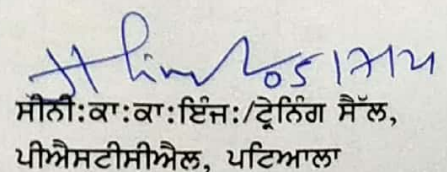 05/7/21
ਸੀਨੀ:ਕਾ:ਕਾ:ਇੰਜ:/ਟ੍ਰੇਨਿੰਗ ਸੈੱਲ,
ਪੀਐਸਟੀਸੀਐਲ, ਪਟਿਆਲਾ